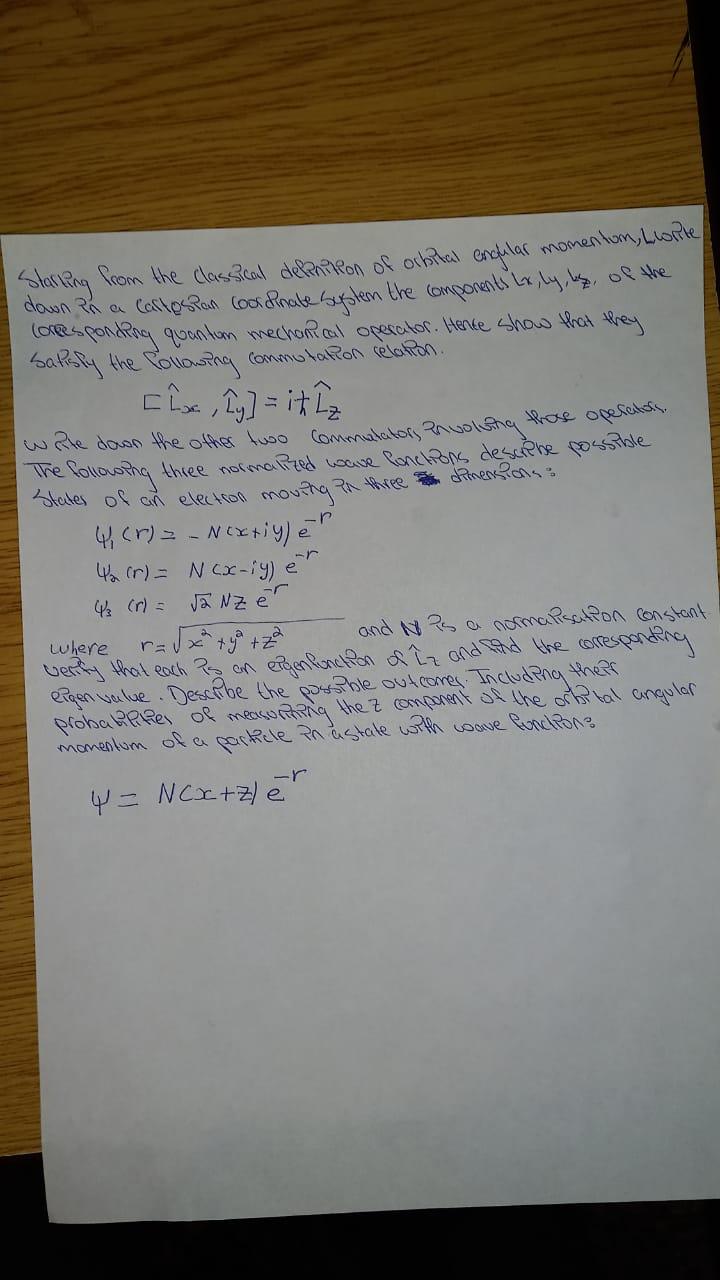 Starting from the classical definition of orbital angular momentum, L write
down in a Cartesian Coordinate System the components Lx, Ly, Lz, of the
corresponding quantum mechanical operator. Hence show that they
satisfy the following commutation relation.
[L̂x, L̂y] = iħL̂z
write down the other two commutators, involving those operators.
The following three normalized wave functions describe possible
states of an electron moving in three dimensions:
ψ₁(r) = -N(x+iy) e⁻ʳ
ψ₂(r) = N(x-iy) e⁻ʳ
ψ₃(r) = √2 Nz e⁻ʳ
where r = √x²+y²+z² and N is a normalisation constant
verify that each is an eigenfunction of L̂z and find the corresponding
eigen value. Describe the possible outcomes, Including their
probabilities of measuring the z component of the orbital angular
momentum of a particle in a state with wave function:
ψ = N(x+z) e⁻ʳ